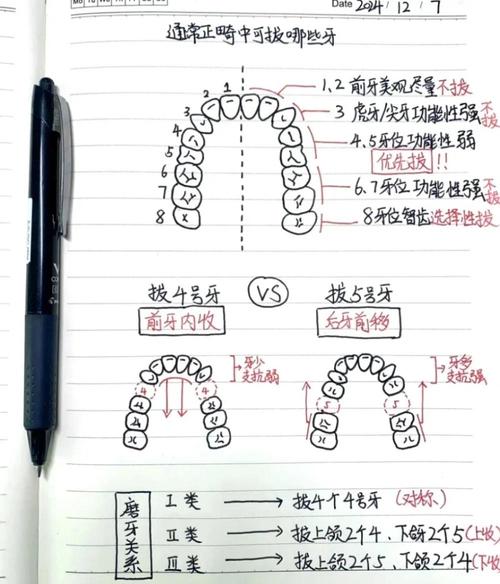 Mo Tu We Th Fr Sa Su
Date 2024 / 12 / 7
通常正畸中可拔哪些牙
1 2 3 4 5 6 7 8
1、2 前牙美观尽量不拔
3 虎牙/尖牙功能性强不拔
4.5牙位功能性弱
优先拔!!
6.7牙位功能性强不拔
8牙位智齿选择性拔
拔4号牙 VS 拔5号牙
前牙内收 后牙前移
牙少 支抗弱
牙多 支抗强
4 4
5 5
磨牙关系
I类 → 拔4个4号牙 (对称)
II类 → 拔上颌2个4、下颌2个5(上收)
III类 → 拔上颌2个5、下颌2个4(下收)